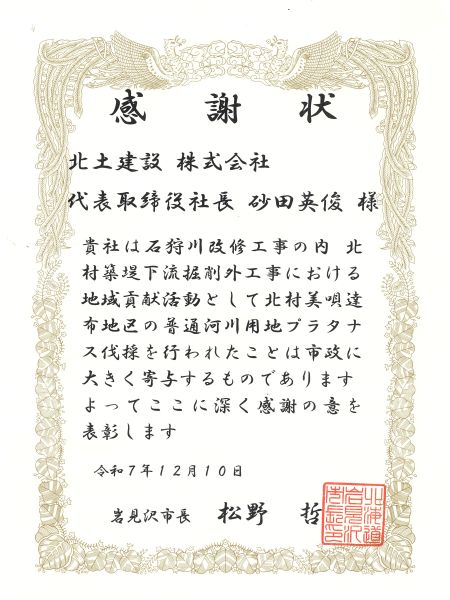 感謝状
北土建設 株式会社
代表取締役社長 砂田英俊 様
貴社は石狩川改修工事の内 北
村築堤下流掘削外工事における
地域貢献活動として北村美唄達
布地区の普通河川用地プラタナ
ス伐採を行われたことは市政に
大きく寄与するものであります
よってここに深く感謝の意を
表彰します
令和7年12月10日
岩見沢市長 松野 哲
北海道
岩見沢
市長印